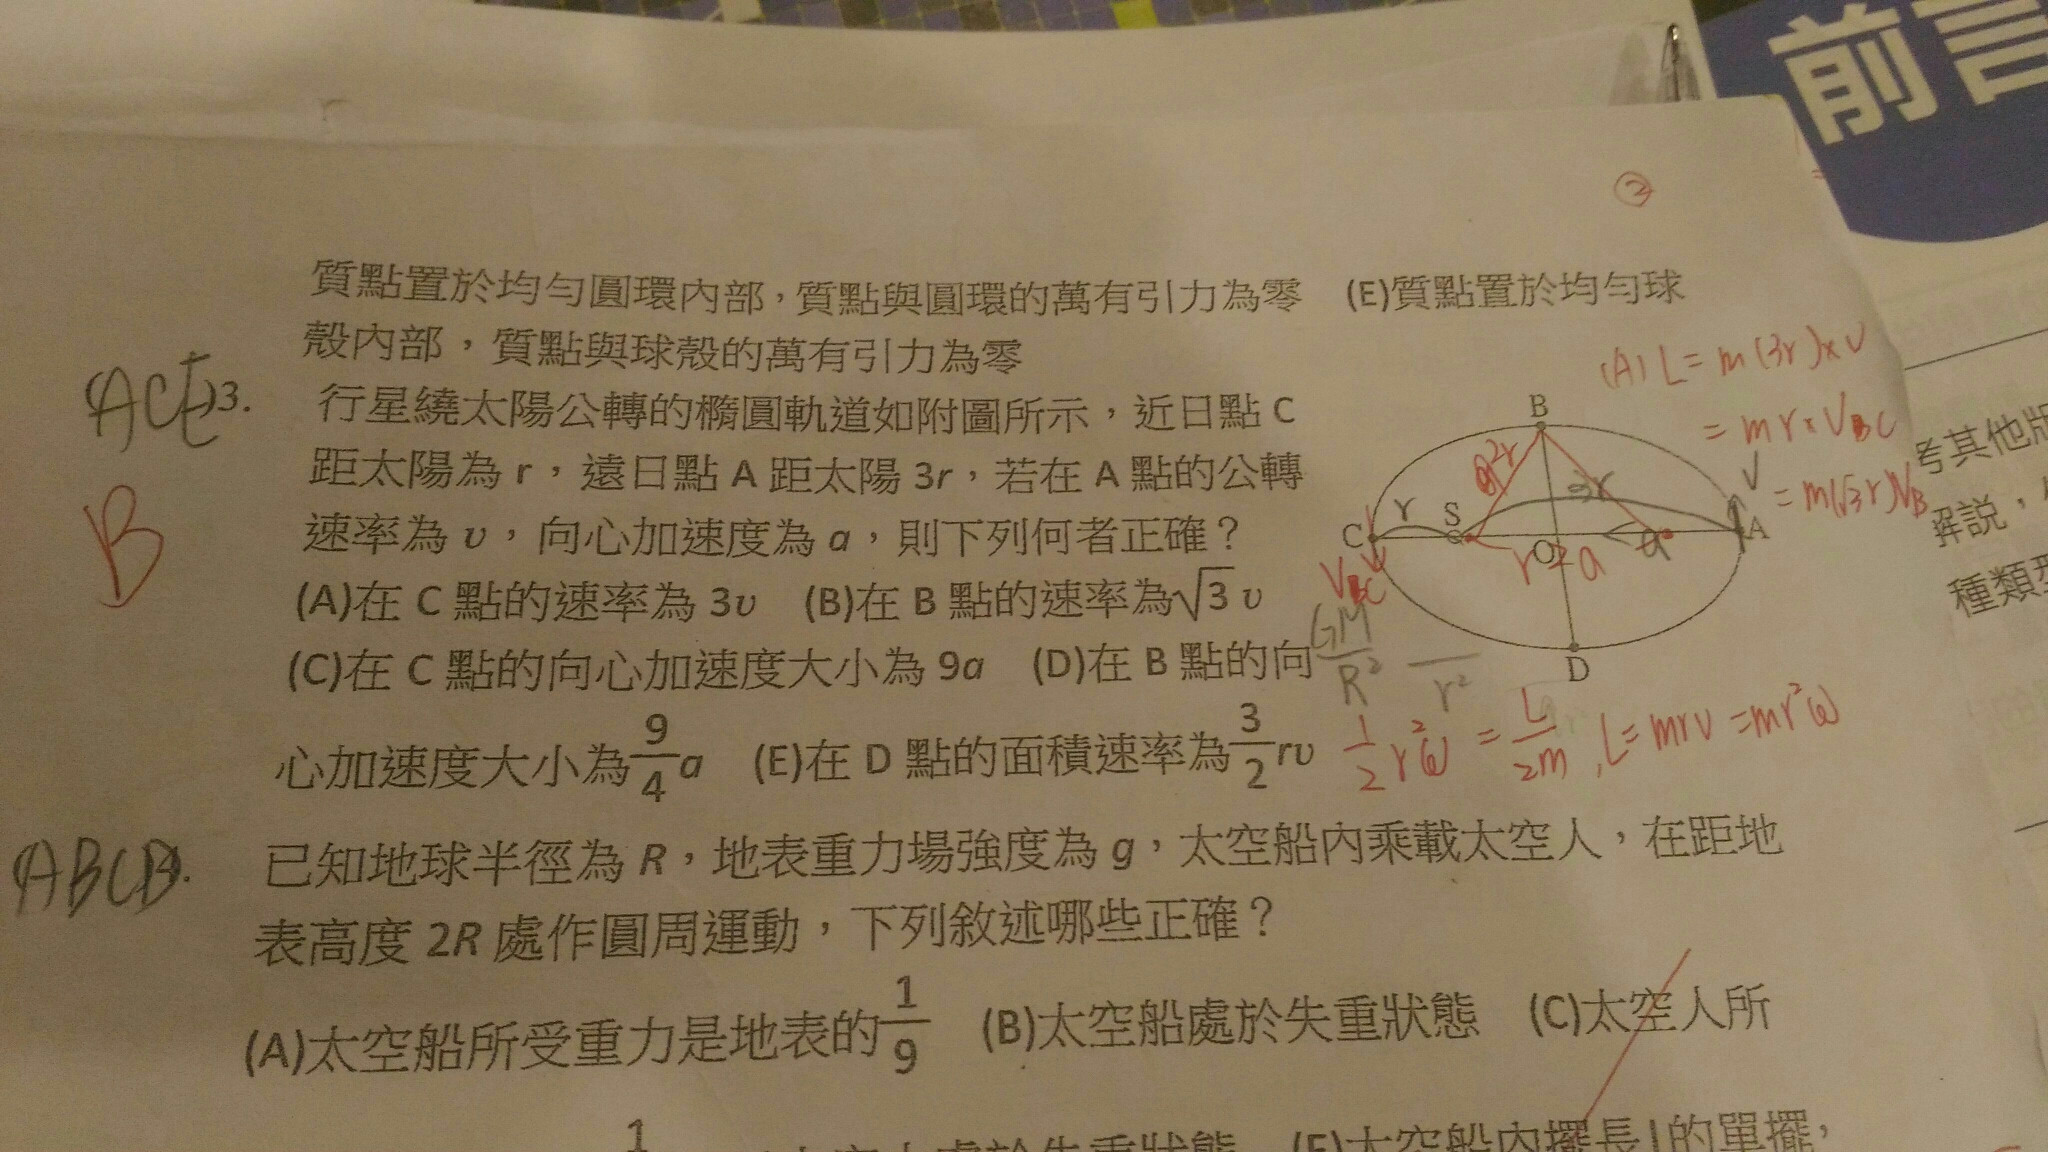 前言
②
質點置於均勻圓環內部，質點與圓環的萬有引力為零 (E)質點置於均勻球
殼內部，質點與球殼的萬有引力為零
(ACE)3. 行星繞太陽公轉的橢圓軌道如附圖所示，近日點 C
距太陽為 r，遠日點 A 距太陽 3r，若在 A 點的公轉
速率為 υ，向心加速度為 a，則下列何者正確？
(A)在 C 點的速率為 3υ (B)在 B 點的速率為√3 υ
(C)在 C 點的向心加速度大小為 9a (D)在 B 點的向
心加速度大小為 9/4 a (E)在 D 點的面積速率為 3/2 rυ
B
(A) L = m(3r)×v
= mr×VBC
= m(√3r)VB
B
2r
3r
v
C
r
S
O
a
A
r
a
VBC
D
GM/R²
r²
1/2 r²ω = L/2m , L = mrv = mr²ω
ABCD. 已知地球半徑為 R，地表重力場強度為 g，太空船內乘載太空人，在距地
表高度 2R 處作圓周運動，下列敘述哪些正確？
(A)太空船所受重力是地表的 1/9 (B)太空船處於失重狀態 (C)太空人所
1
處於失重狀態 (E)太空船內擺長 l 的單擺，
考其他版
解說，
種類型